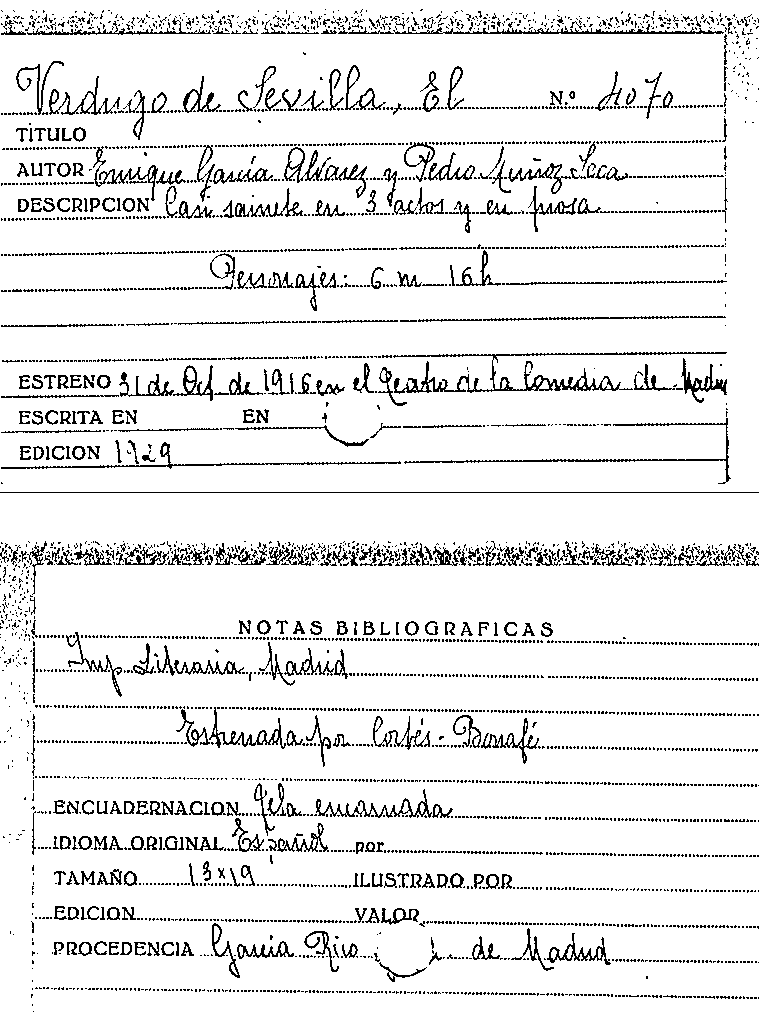 Verdugo de Sevilla, El Nº 4070
TITULO
AUTOR Enrique García Alvarez y Pedro Muñoz Seca
DESCRIPCION Casi sainete en 3 actos y en prosa
Personajes: 6 m 16 h
ESTRENO 31 de Oct de 1916 en el Teatro de la Comedia de Madri
ESCRITA EN EN
EDICION 1929
NOTAS BIBLIOGRAFICAS
Imp Literaria, Madrid
Estrenada por Cortés - Bonafé
ENCUADERNACION Tela encarnada
IDIOMA ORIGINAL Español por
TAMAÑO 13x19 ILUSTRADO POR
EDICION VALOR
PROCEDENCIA García Rico de Madrid